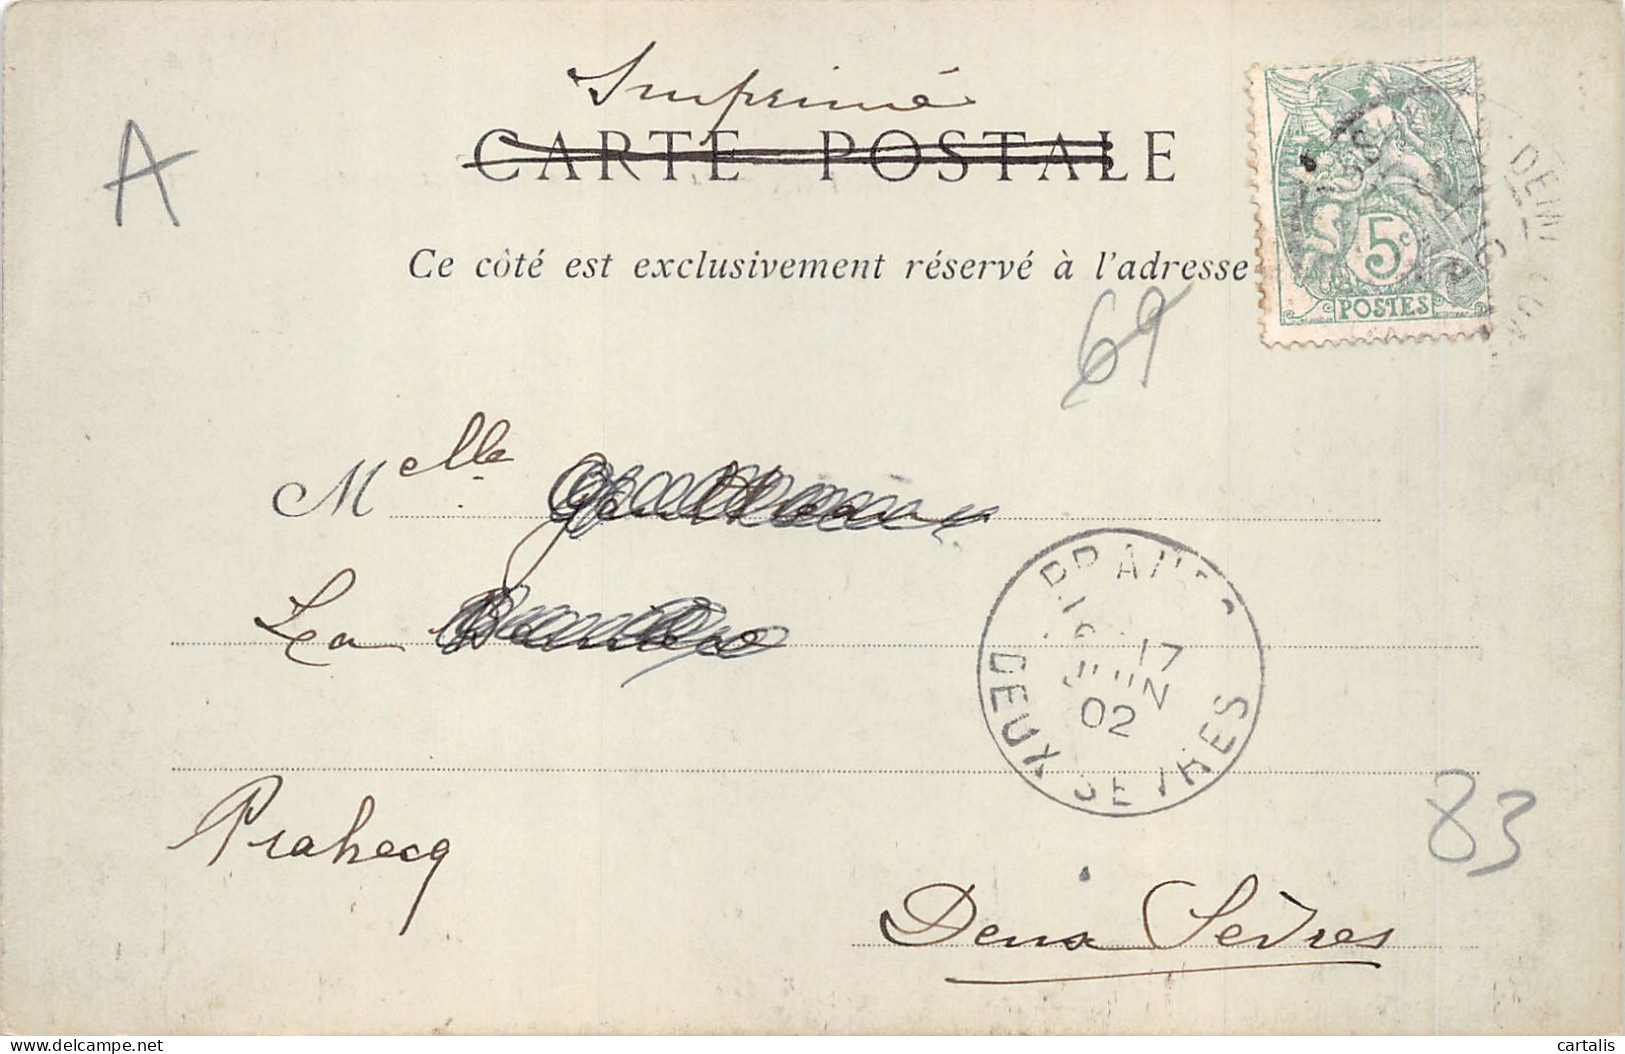 Imprimé
A
CARTE POSTALE
Ce côté est exclusivement réservé à l'adresse
5c
POSTES
69
Melle
La
17
JUIN
02
DEUX SEVRES
Prahecq
83
Deux Sèvres
delcampe.net
cartalis